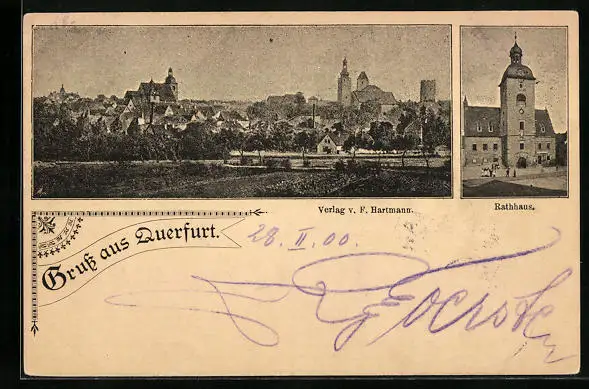 Verlag v. F. Hartmann.
Rathhaus.
Gruß aus Querfurt.
28. II. 00.